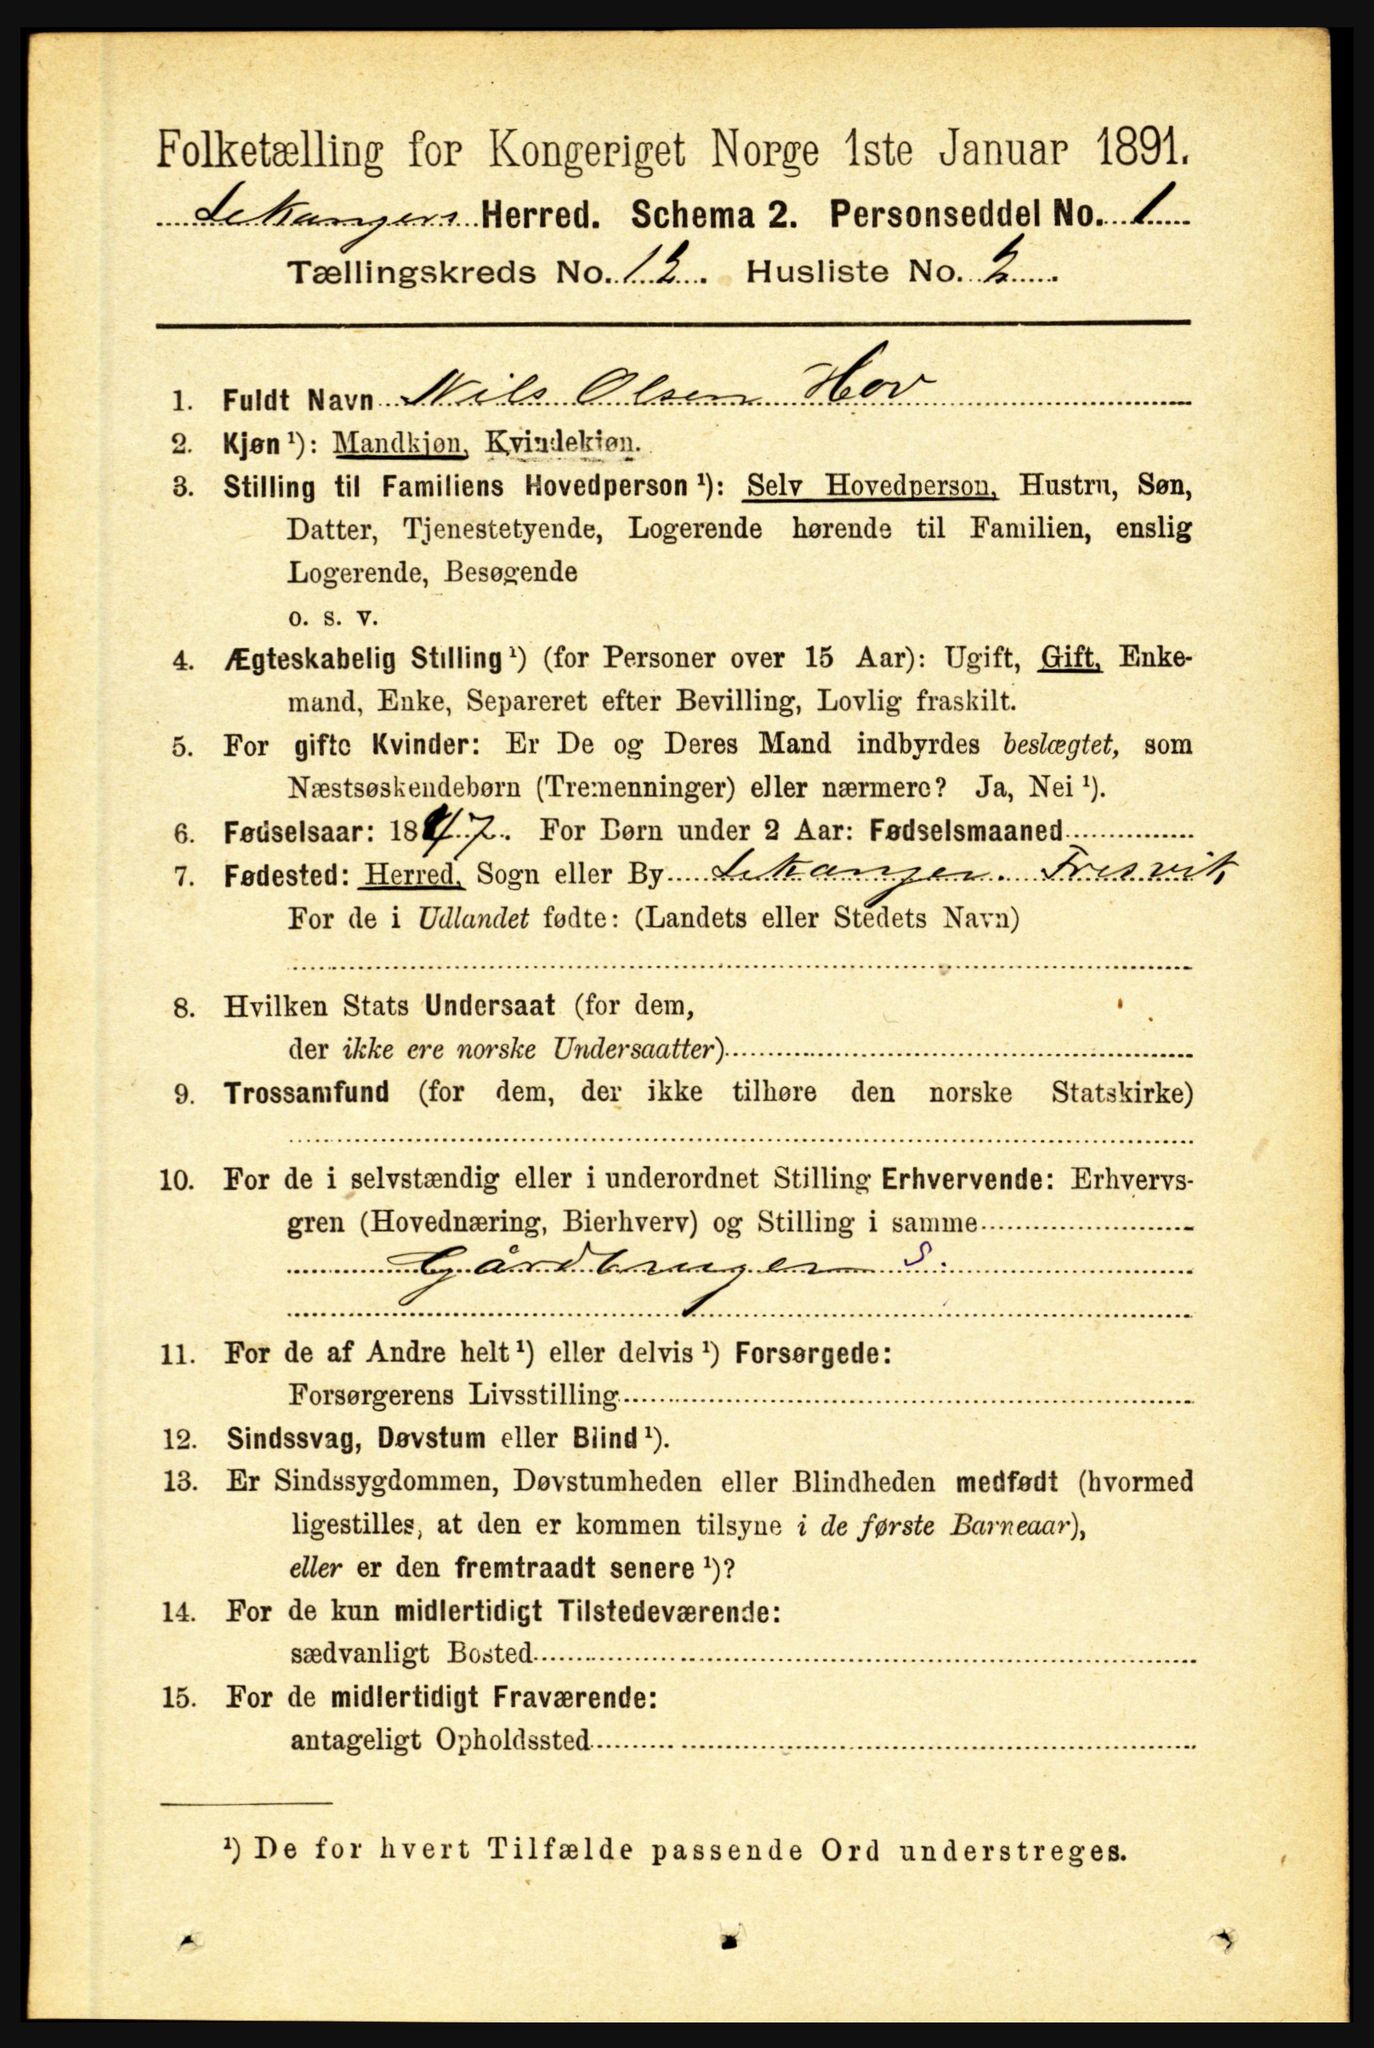 Folketælling for Kongeriget Norge 1ste Januar 1891.
Lekanger Herred. Schema 2. Personseddel No. 1
Tællingskreds No. 12. Husliste No. 2
1. Fuldt Navn Nils Olsen Hov
2. Kjøn¹): Mandkjøn, Kvindekjøn.
3. Stilling til Familiens Hovedperson¹): Selv Hovedperson, Hustru, Søn,
Datter, Tjenestetyende, Logerende hørende til Familien, enslig
Logerende, Besøgende
o. s. v.
4. Ægteskabelig Stilling¹) (for Personer over 15 Aar): Ugift, Gift, Enke-
mand, Enke, Separeret efter Bevilling, Lovlig fraskilt.
5. For gifte Kvinder: Er De og Deres Mand indbyrdes beslægtet, som
Næstsøskendebørn (Tremenninger) eller nærmere? Ja, Nei¹).
6. Fødselsaar: 1847. For Børn under 2 Aar: Fødselsmaaned
7. Fødested: Herred, Sogn eller By Lekanger. Fresvik
For de i Udlandet fødte: (Landets eller Stedets Navn)
8. Hvilken Stats Undersaat (for dem,
der ikke ere norske Undersaatter)
9. Trossamfund (for dem, der ikke tilhøre den norske Statskirke)
10. For de i selvstændig eller i underordnet Stilling Erhvervende: Erhvervs-
gren (Hovednæring, Bierhverv) og Stilling i samme
Gårdbruger S.
11. For de af Andre helt¹) eller delvis¹) Forsørgede:
Forsørgerens Livsstilling
12. Sindssvag, Døvstum eller Blind¹).
13. Er Sindssygdommen, Døvstumheden eller Blindheden medfødt (hvormed
ligestilles, at den er kommen tilsyne i de første Barneaar),
eller er den fremtraadt senere¹)?
14. For de kun midlertidigt Tilstedeværende:
sædvanligt Bosted
15. For de midlertidigt Fraværende:
antageligt Opholdssted
¹) De for hvert Tilfælde passende Ord understreges.